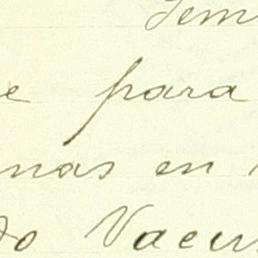 Sem
e para
nas en
do Vacu